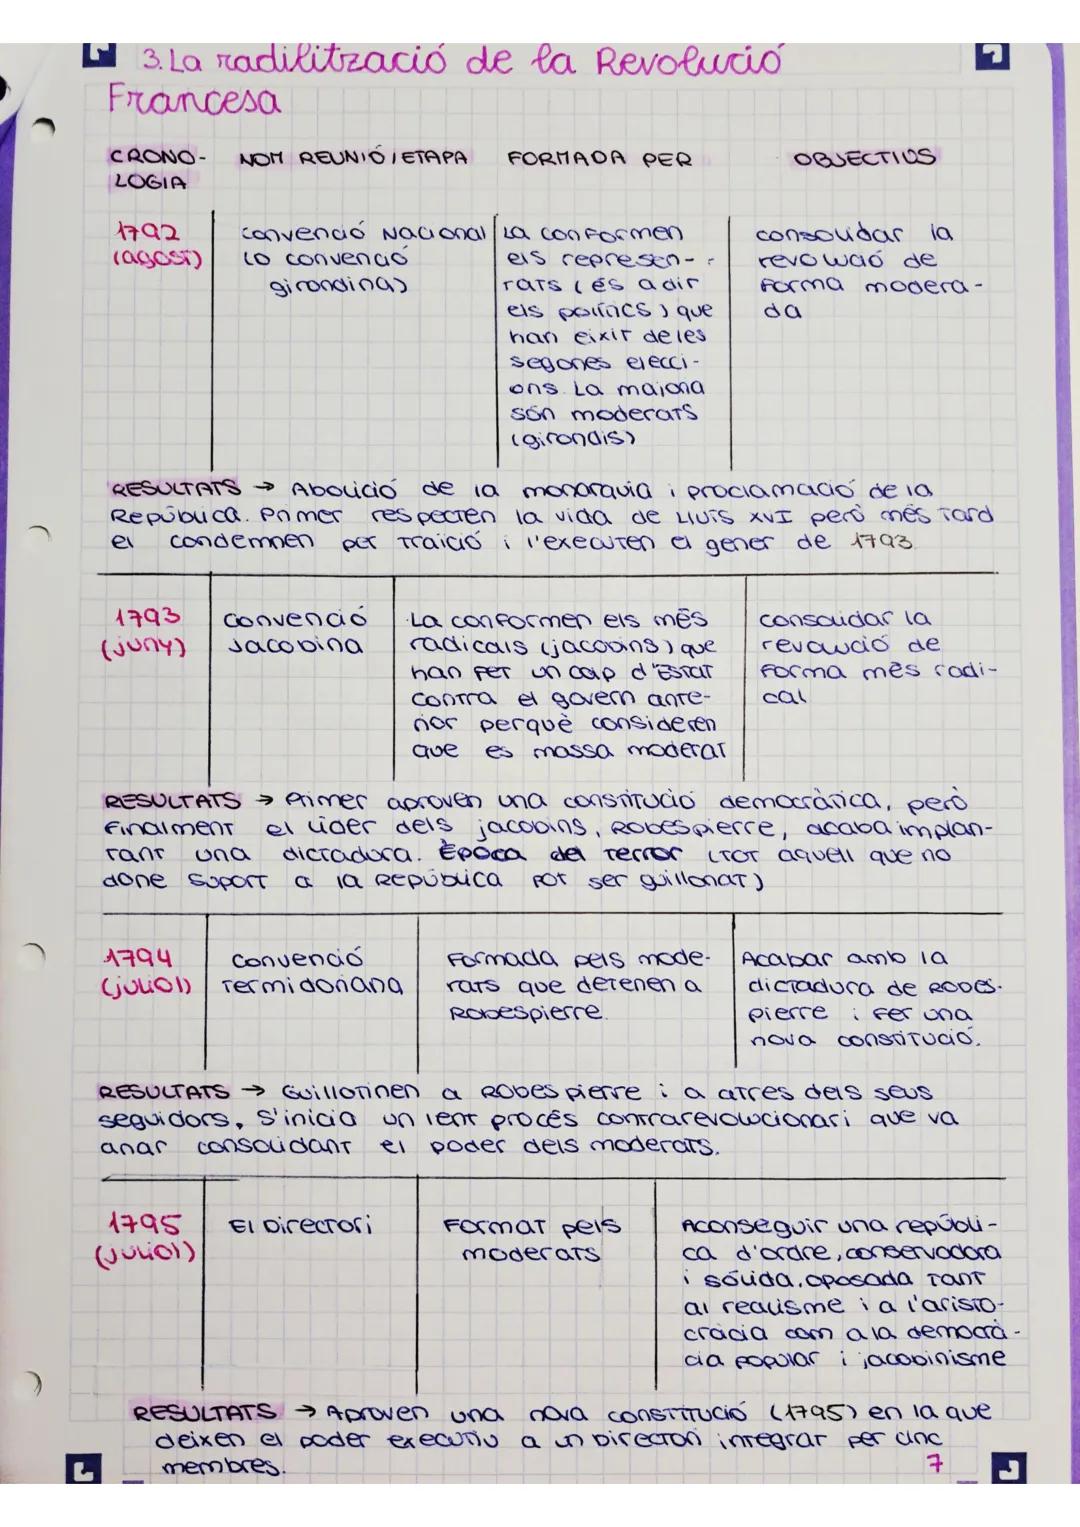 3. La radilització de la Revolució
Francesa
CRONO- NOM REUNIÓ/ETAPA FORMADA PER OBJECTIUS
LOGIA
1792
(agost)
Convenció Nacional
(o convenció
girondina)
La conformen
els represen-
tats (és a dir
els polítics) que
han eixit de les
segones elecci-
ons. La majoria
són moderats
(girondis)
consolidar la
revolució de
forma modera-
da
RESULTATS → Abolició de la monarquia i proclamació de la
República. Primer respecten la vida de Lluís XVI però més tard
el condemnen per traició i l'executen el gener de 1793
1793
(juny)
Convenció
Jacobina
La conformen els més
radicals (jacobins) que
han fet un colp d'Estat
contra el govern ante-
rior perquè consideren
que es massa moderat
consolidar la
revolució de
forma més radi-
cal
RESULTATS → Primer aproven una constitució democràtica, però
finalment el líder dels jacobins, Robespierre, acaba implan-
tant una dictadura. Època del terror (tot aquell que no
done suport a la República pot ser guillonat)
1794
(juliol)
Convenció
Termidoriana
Formada pels mode-
rats que detenen a
Robespierre.
Acabar amb la
dictadura de Robes-
pierre i fer una
nova constitució.
RESULTATS → Guillotinen a Robespierre i a atres dels seus
seguidors. S'inicia un lent procés contrarevolucionari que va
anar consolidant el poder dels moderats.
1795
(juliol)
El Directori
Format pels
moderats
Aconseguir una repúbli-
ca d'ordre, conservadora
i sólida, oposada tant
al realisme i a l'aristo-
cràcia com a la democrà-
cia popular i jacobinisme
RESULTATS → Aproven una nova constitució (1795) en la que
deixen el poder executiu a un Directori integrat per cinc
membres.
7